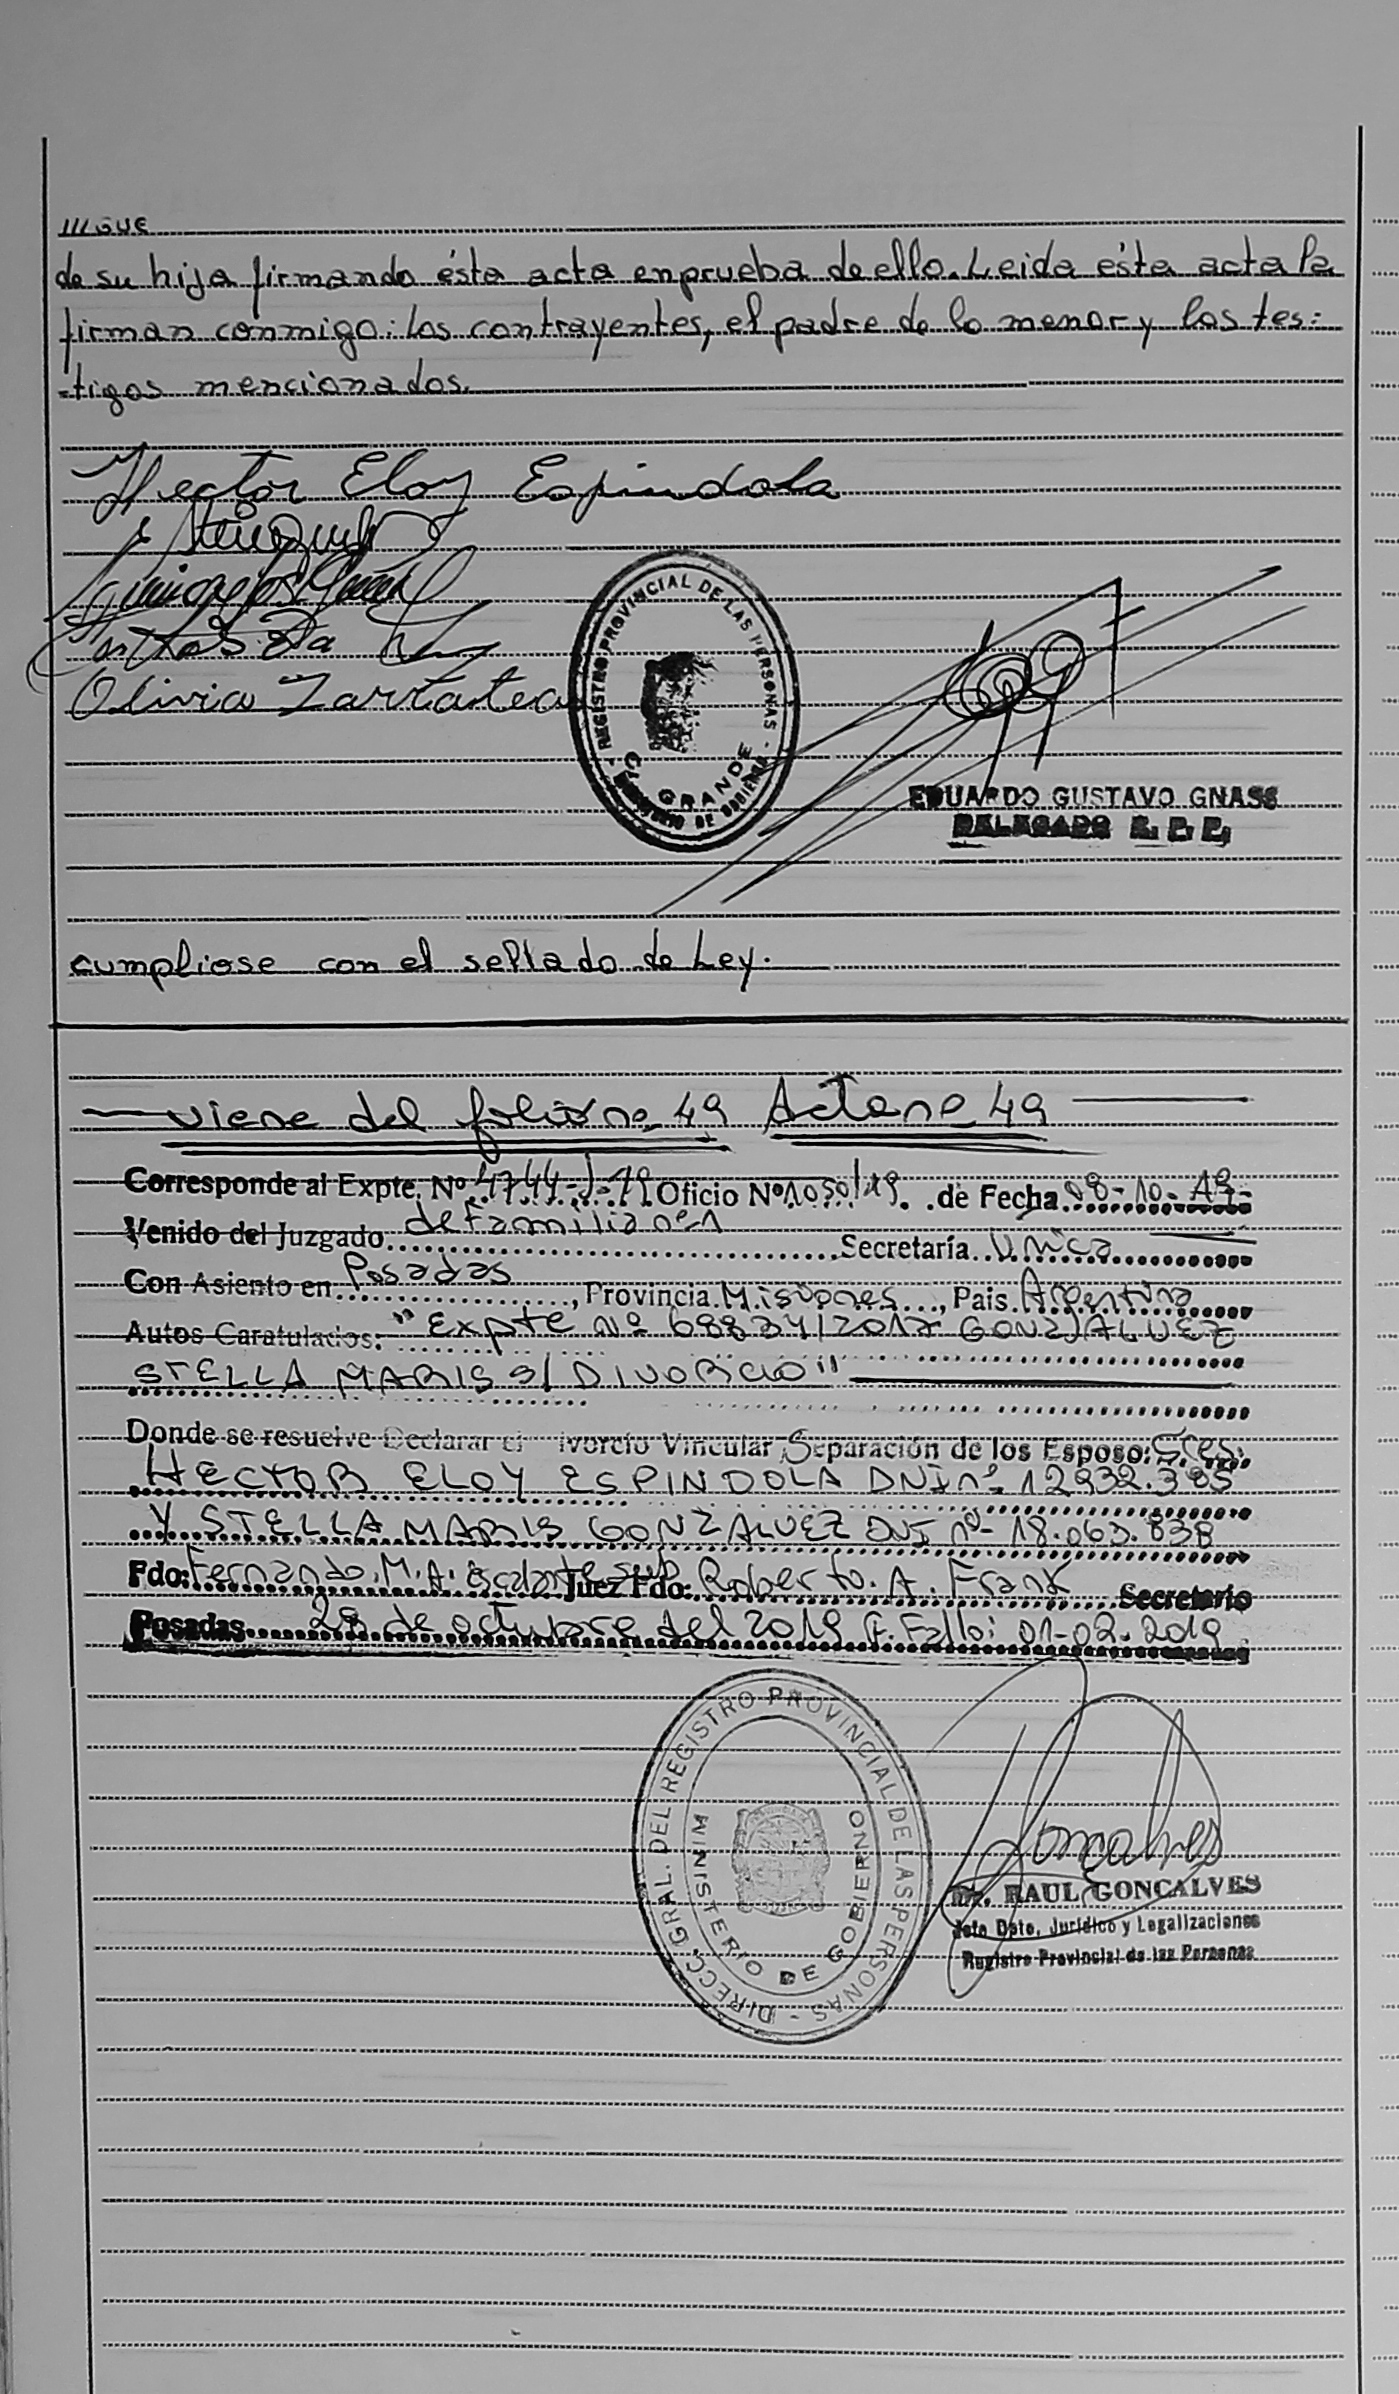 ///gue
de su hija firmando ésta acta enprueba de ello. Leida ésta acta la
firman conmigo: los contrayentes, el padre de la menor y los tes=
-tigos mencionados.
Hector Eloy Espindola
Olivia Zarratea
REGISTRO PROVINCIAL DE LAS PERSONAS
Cº GRANDE
MINISTERIO DE GOBIERNO
EDUARDO GUSTAVO GNASS
DELEGADO R. P. P.
cumpliose con el sellado de Ley.
viene del folio nº 49 Acta nº 49
Corresponde al Expte. Nº 4744-J-19 Oficio Nº 1050/19. de Fecha 08-10-19-
Venido del Juzgado de Familia nº 1 Secretaría Unica
Con Asiento en Posadas, Provincia Misiones, Pais Argentina
Autos Caratulados: "Expte Nº 68834/2017 GONZALUEZ
STELLA MARIS S/ DIVORCIO"
Donde se resuelve Declarar el ivorcio Vincular Separación de los Esposo: Sres.
HECTOR ELOY ESPINDOLA DNI nº 12932.385
Y STELLA MARIS GONZALUEZ DNI nº 18.063.838
Fdo: Fernando M. A. Escalante sub Juez Fdo: Roberto. A. Frank Secretario
Posadas 28 de octubre del 2019 F. Fallo: 01-02-2019
DIRECC. GRAL. DEL REGISTRO PROVINCIAL DE LAS PERSONAS -
MINISTERIO DE GOBIERNO
Goncalves
Dr. RAUL GONCALVES
Jefe Dpto. Jurídico y Legalizaciones
Registro Provincial de las Personas